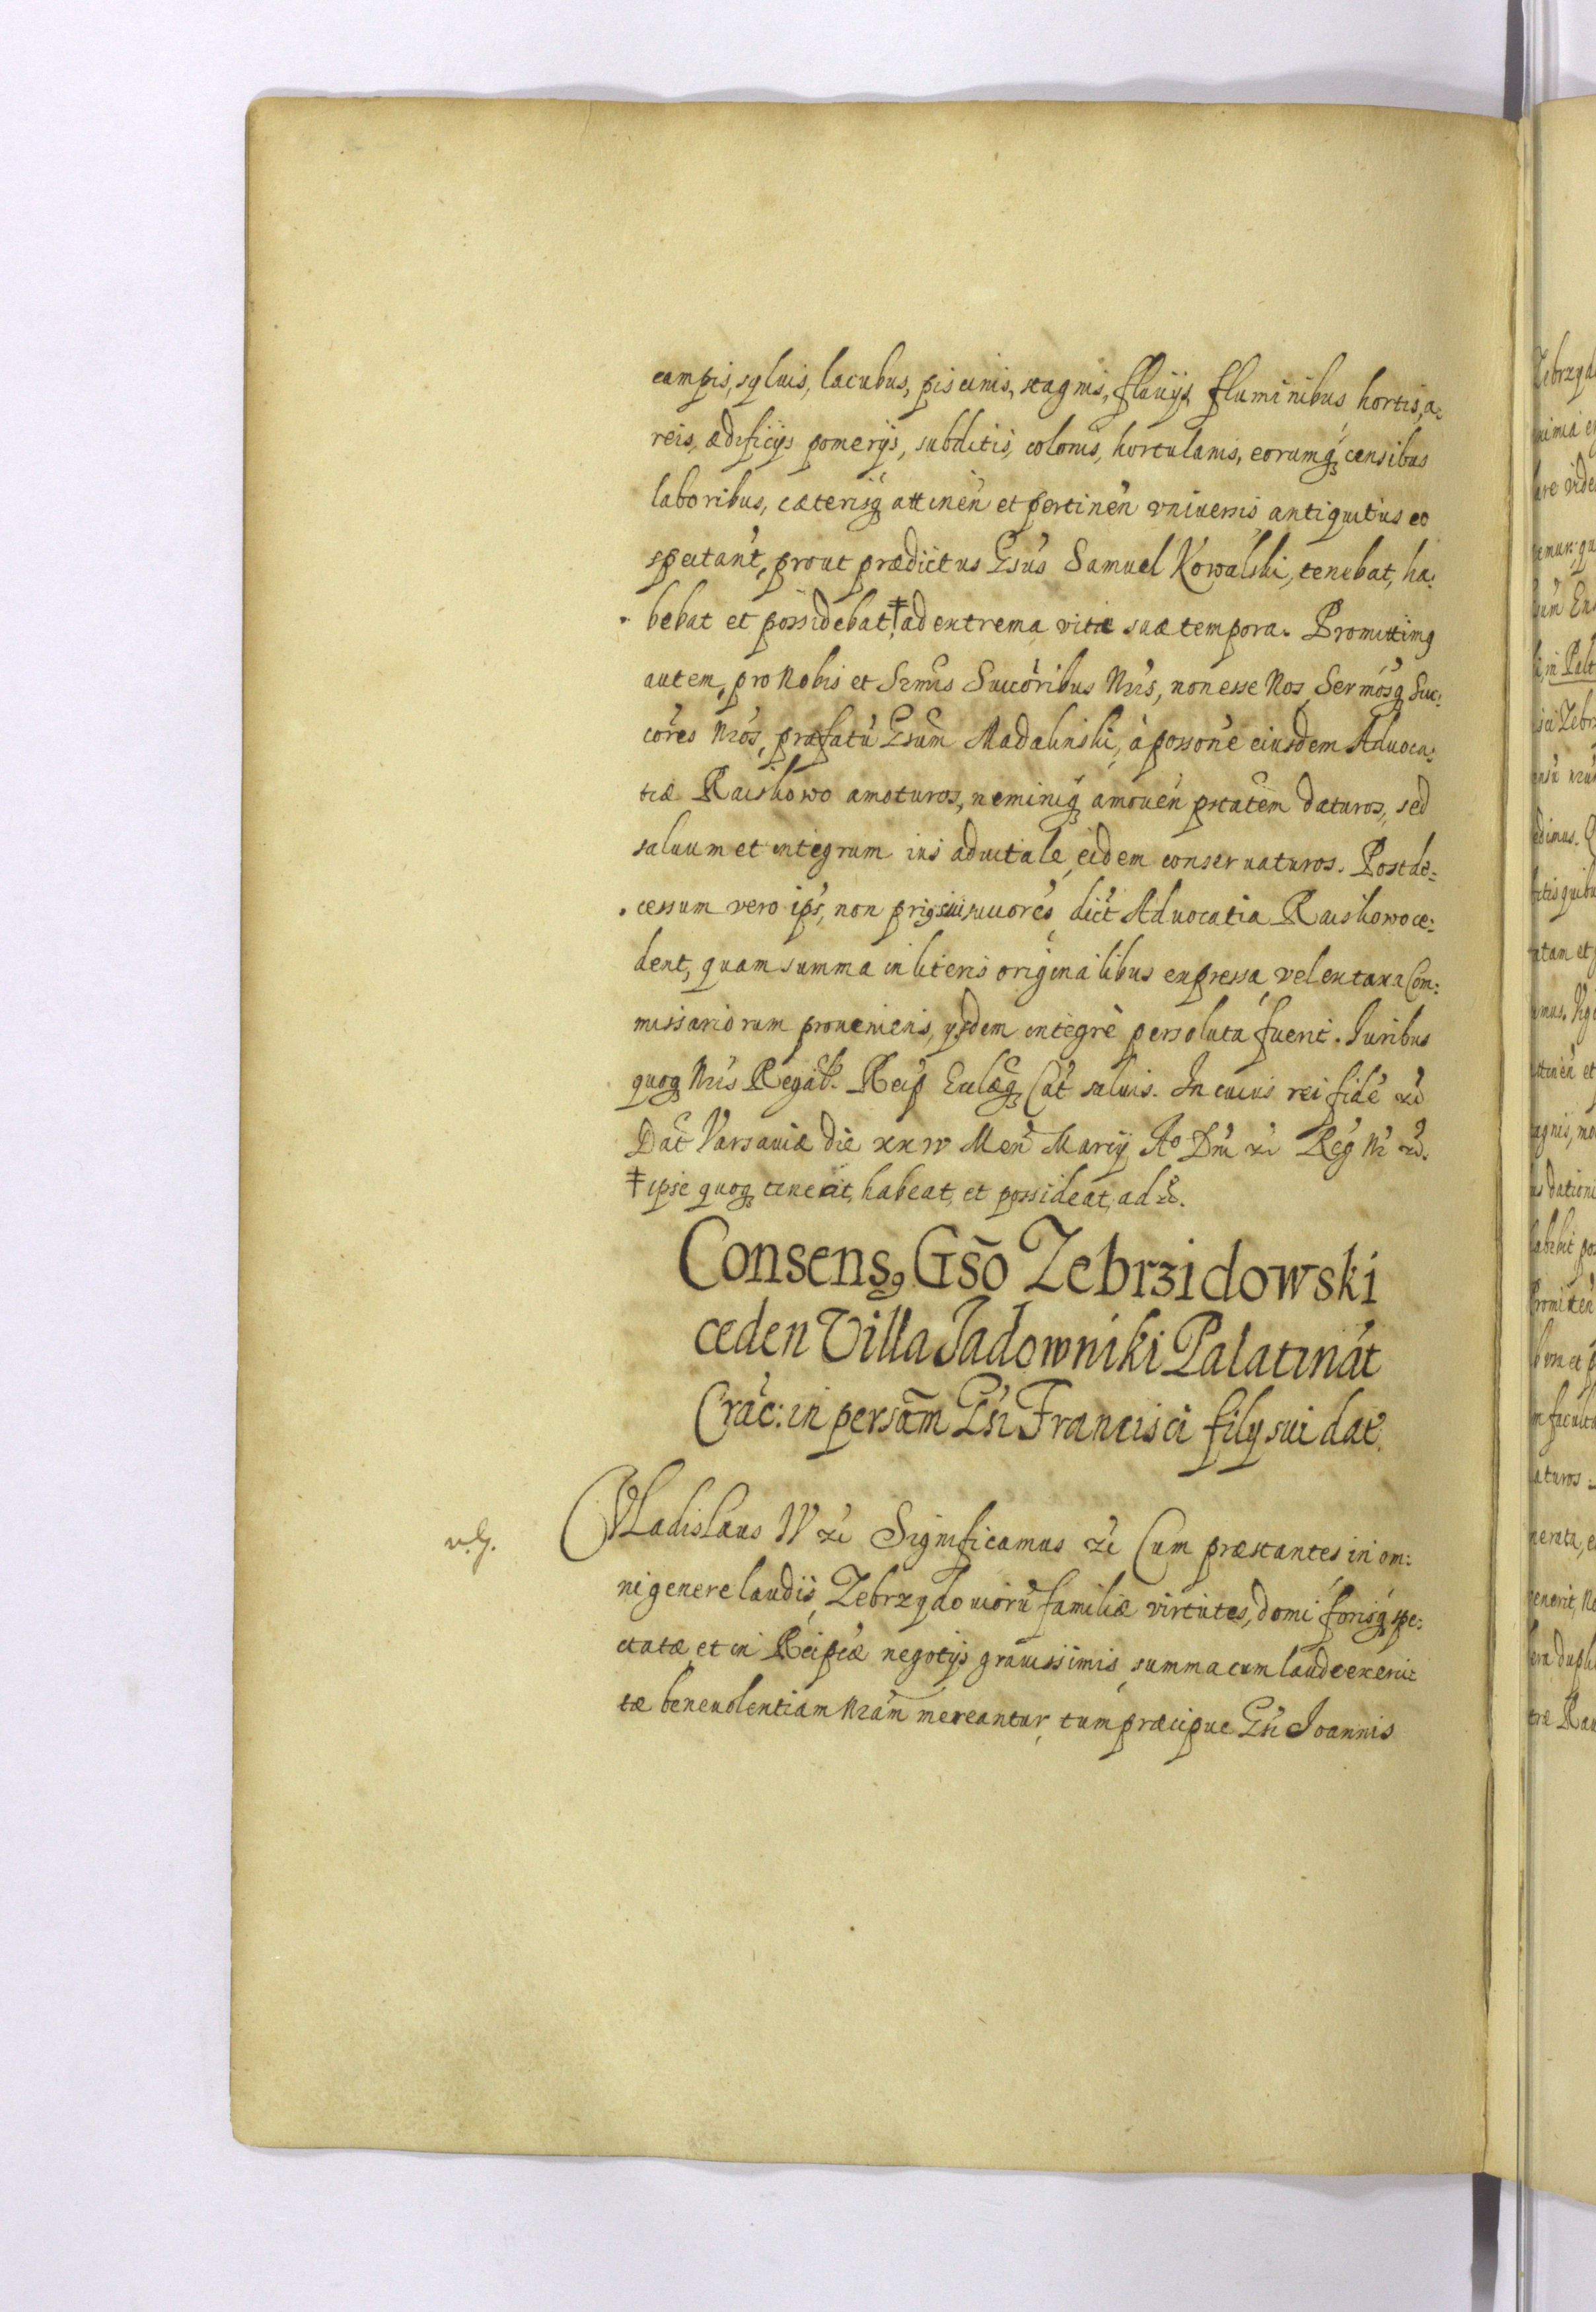 campis, syluis, lacubus, piscinis, stagnis, fluuijs, fluminibus, hortis, a:
reis, ædificijs pomerijs, subditis, colonis, hortulanis, eorumq́ȝ censibus
laboribus, cæterisq́ȝ attinen̄ et pertinen̄ vniuersis antiquitus eo
spectant̄, prout prædictus Gn̄sus Samuel Kowalski, tenebat, ha:
bebat et possidebat ‡ ad extrema vitæ suæ tempora. Promittimꝰ
autem, pro Nobis et Sermis Succōribus Nr̄is, non esse Nos, Sermósqȝ Suc:
cōres Nr̄os, præfatū Gn̄sum Madalinski, à possone eiusdem Aduoca:
tiæ Raiskowo amoturos, neminiqȝ amouen̄ ptatem daturos, sed
saluum et integrum ius aduitale, eidem conseruaturos. Post de:
cessum vero ips̄, non priꝰ sui succores, dict̄ Aduocatia Raiskowo ce:
dent, quam summa in literis originalibus expressa, vel ex taxa Com:
missariorum proueniens, ysdem integrè persoluta fuerit. Iuribus
quoqȝ Nr̄is Regal. Reip Ecclæqȝ Cat̄ saluis. In cuius rei fidē ꝛc̄
Dat̄ Varsauiæ die xxiv Men̄ Marcij Aº Dn̄i ꝛc̄ Reg̃ Nr̄ ꝛc̄.
‡ ipse quoqȝ teneat, habeat, et possideat, ad ꝛc̄.
Consensꝰ Gso Zebrzidowski
ceden Villa Jadowniki Palatinát
Crac: in persām Gn̄si Francisci filij sui dat.
v.g.
Vladislaus IV ꝛc̄ Significamus ꝛc̄ Cum præstantes in om:
ni genere laudis, Zebrzydouiorū familiæ virtutes, domi forisq́ȝ spe:
ctatæ, et in Reipcæ negotijs grauissimis, summa cum laude exerci:
tæ beneuolentiam Nr̄am mereantur, tum præcipue Gn̄si Joannis